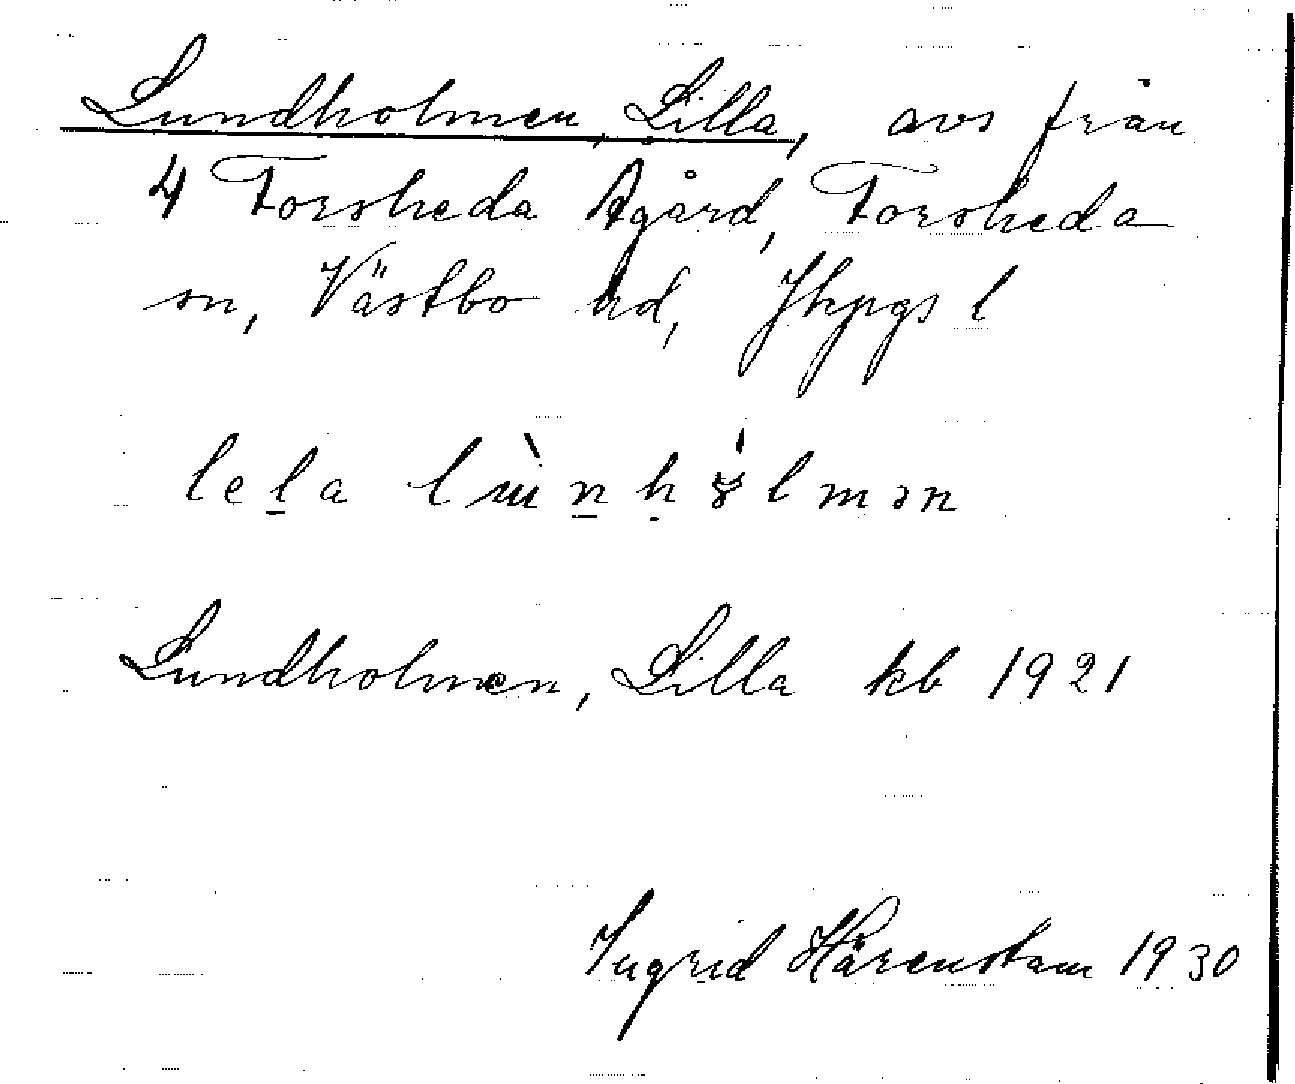 Lundholmen, Lilla, avs från
4 Forsheda Agård, Forsheda
sn, Västbo hd, Jkpgs l
lel̲a lɯ̀n̲ḥɤ́lmən
Lundholmen, Lilla kb 1921
Ingrid Härenstam 1930